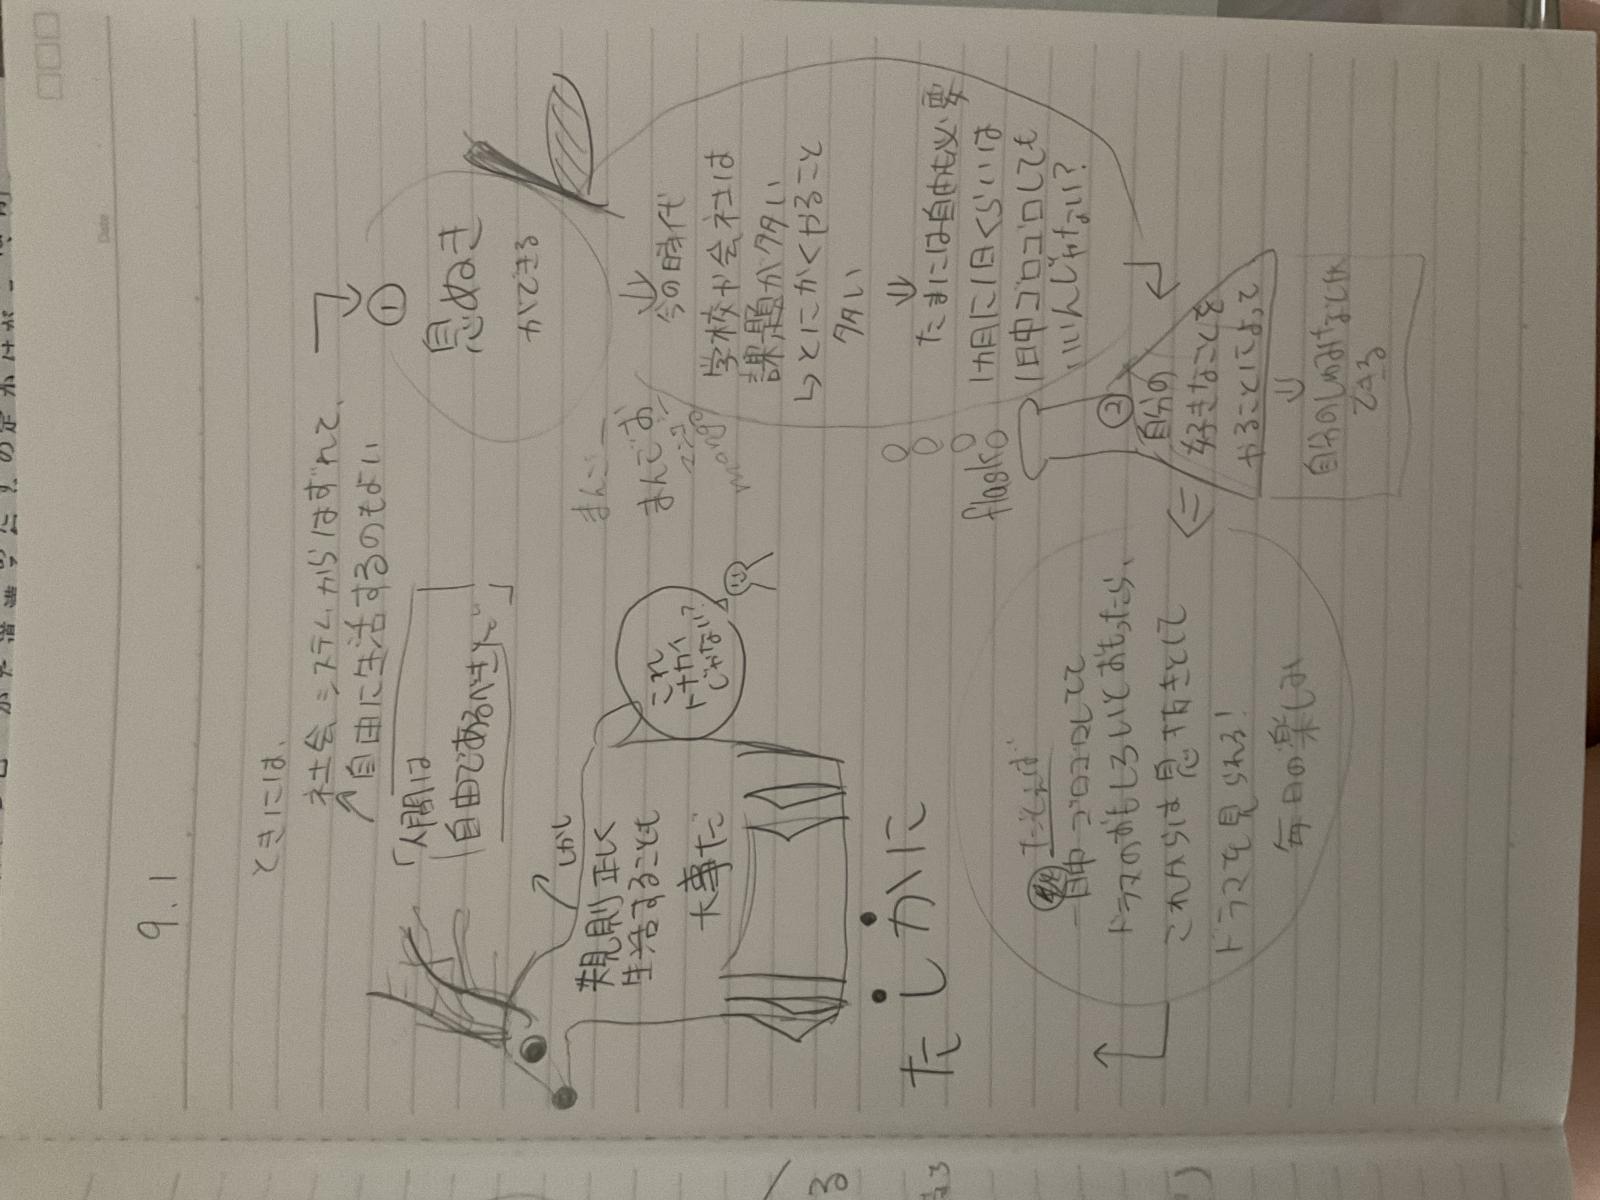 9.1
ときには、
社会システムからはずれて、
自由に生活するのもよい
「人間は
自由であるべきだ」
しかし
規則正しく
生活することも
大事だ
これ
トナカイ
じゃない?
たしかに
①
息ぬき
ができる
今の時代
学校や会社は
課題が多い
↳とにかくやること
多い
たまには自由も必要
1カ月に1日くらいは
1日中ゴロゴロしても
いいんじゃない?
まんご
まんでお
マンゴー
mango
flask
②
自分の
好きなことを
やることによって
自分のしゅみなどが
できる
たとえば
一日中ゴロゴロしてて
ドラマがおもしろいとおもったら、
これからは息ぬきとして
ドラマを見られる!
毎日の楽しみ
Date